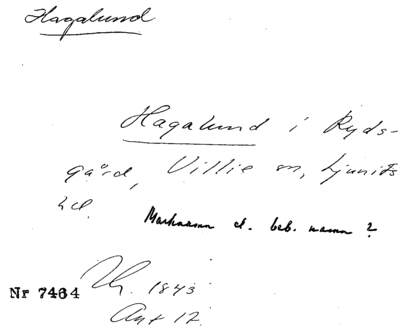 Hagalund
Hagalund i Ryds-
gård, Villie sn, Ljunits
hd.
Marknamn el. beb. namn?
Nr 7464 Th. 1843
Ant 17.